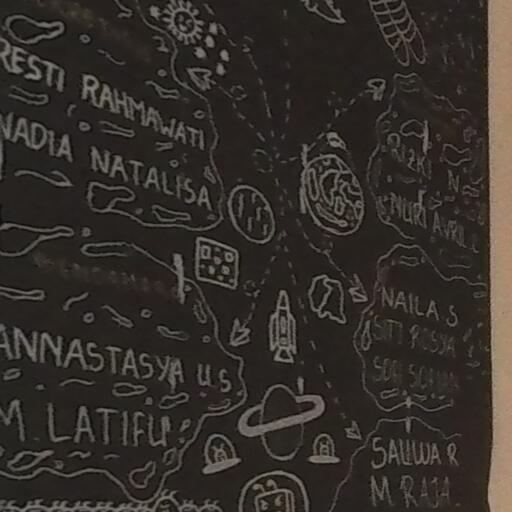 RESTI RAHMAWATI
NADIA NATALISA
ANNASTASYA U S
M. LATIFU
RIZKI N
NURI AVRIL
NAILA S
SITI
SALLWA R
M RAJA